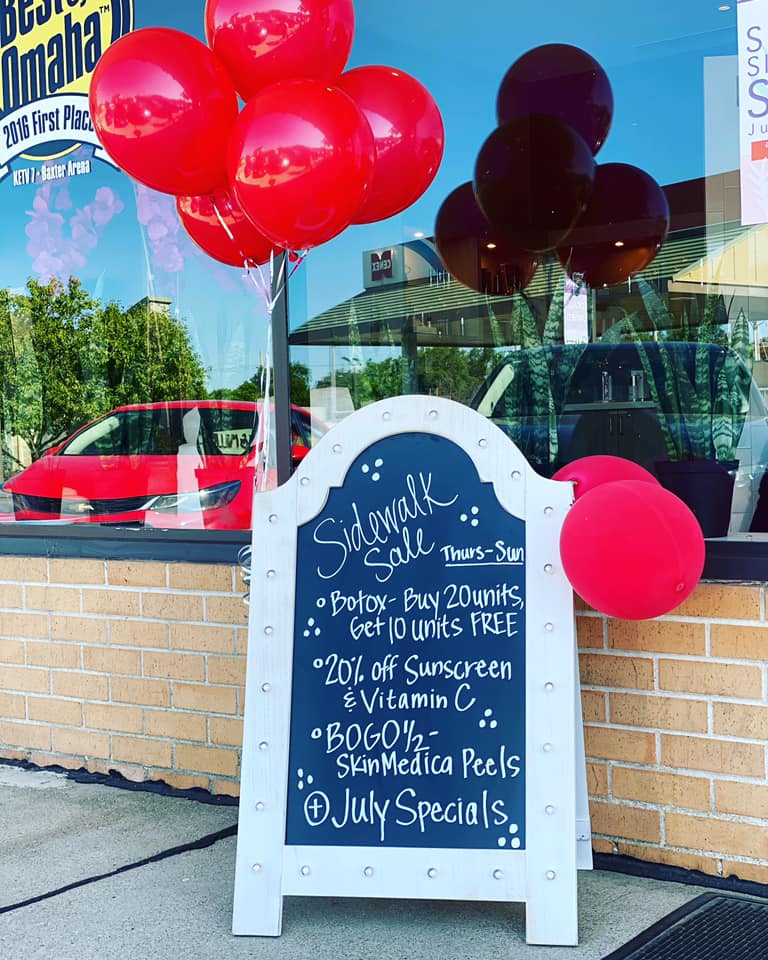 Best of
Omaha™
2016 First Place
KETV 7 - Baxter Arena
CENEX
Sidewalk
Sale Thurs-Sun
Botox - Buy 20 units,
Get 10 units FREE
20% off Sunscreen
& Vitamin C
BOGO 1/2 -
SkinMedica Peels
+ July Specials